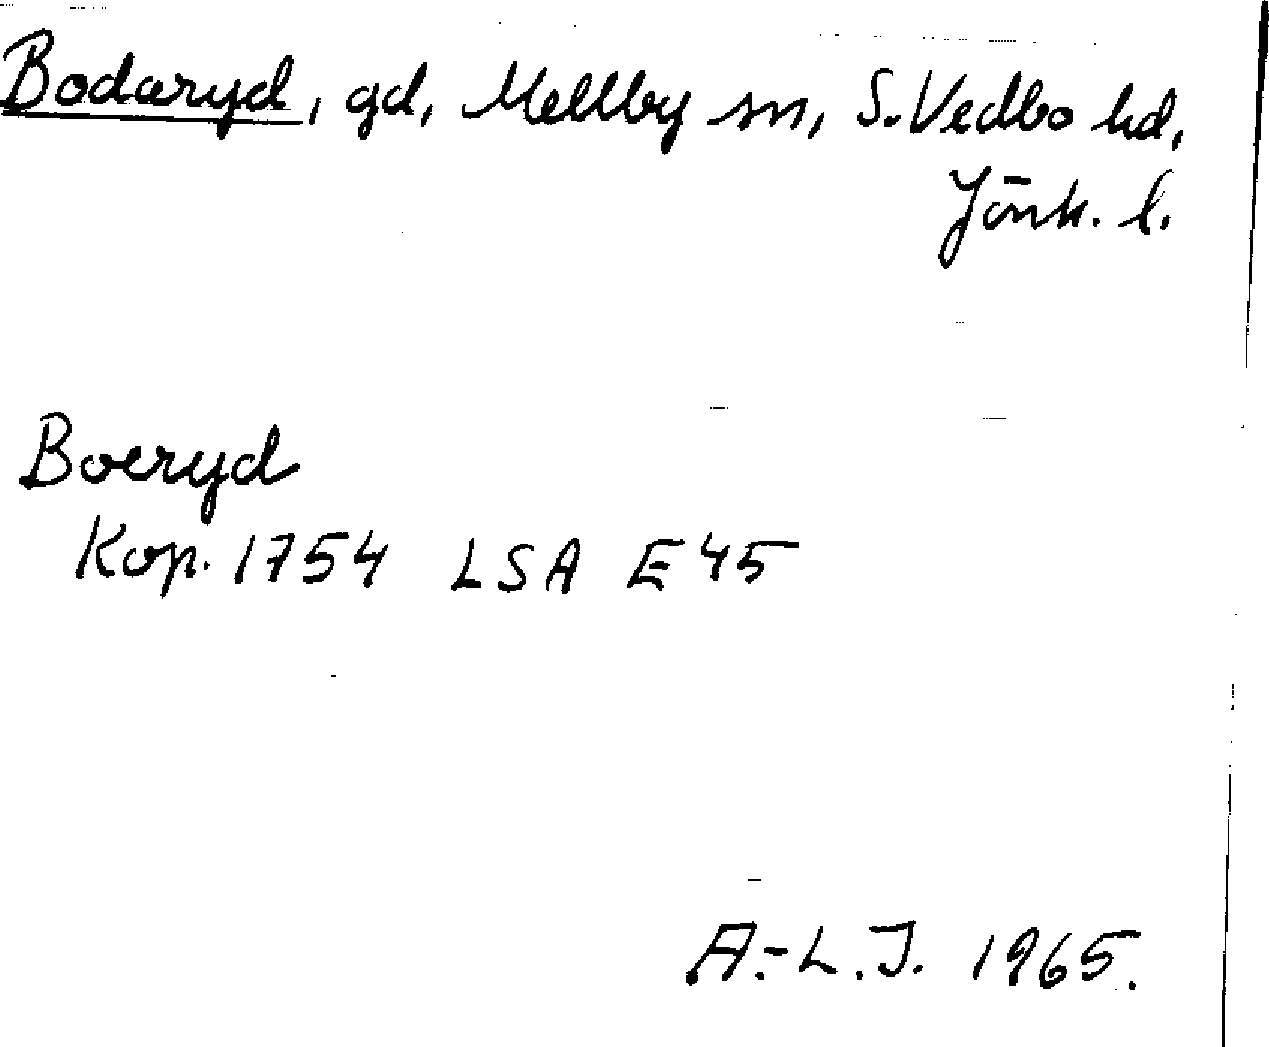 Bodaryd, gd, Mellby sn, S. Vedbo hd,
Jönk. l.
Boeryd
Kop. 1754 LSA E45
A.-L.J. 1965.